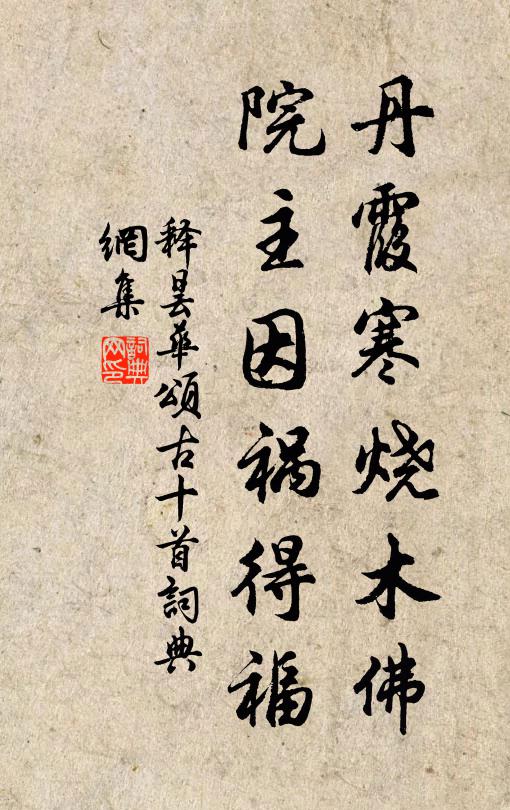 丹霞寒烧木佛
院主因祸得福
释昙华颂古十首詞典
網集
詞典网印